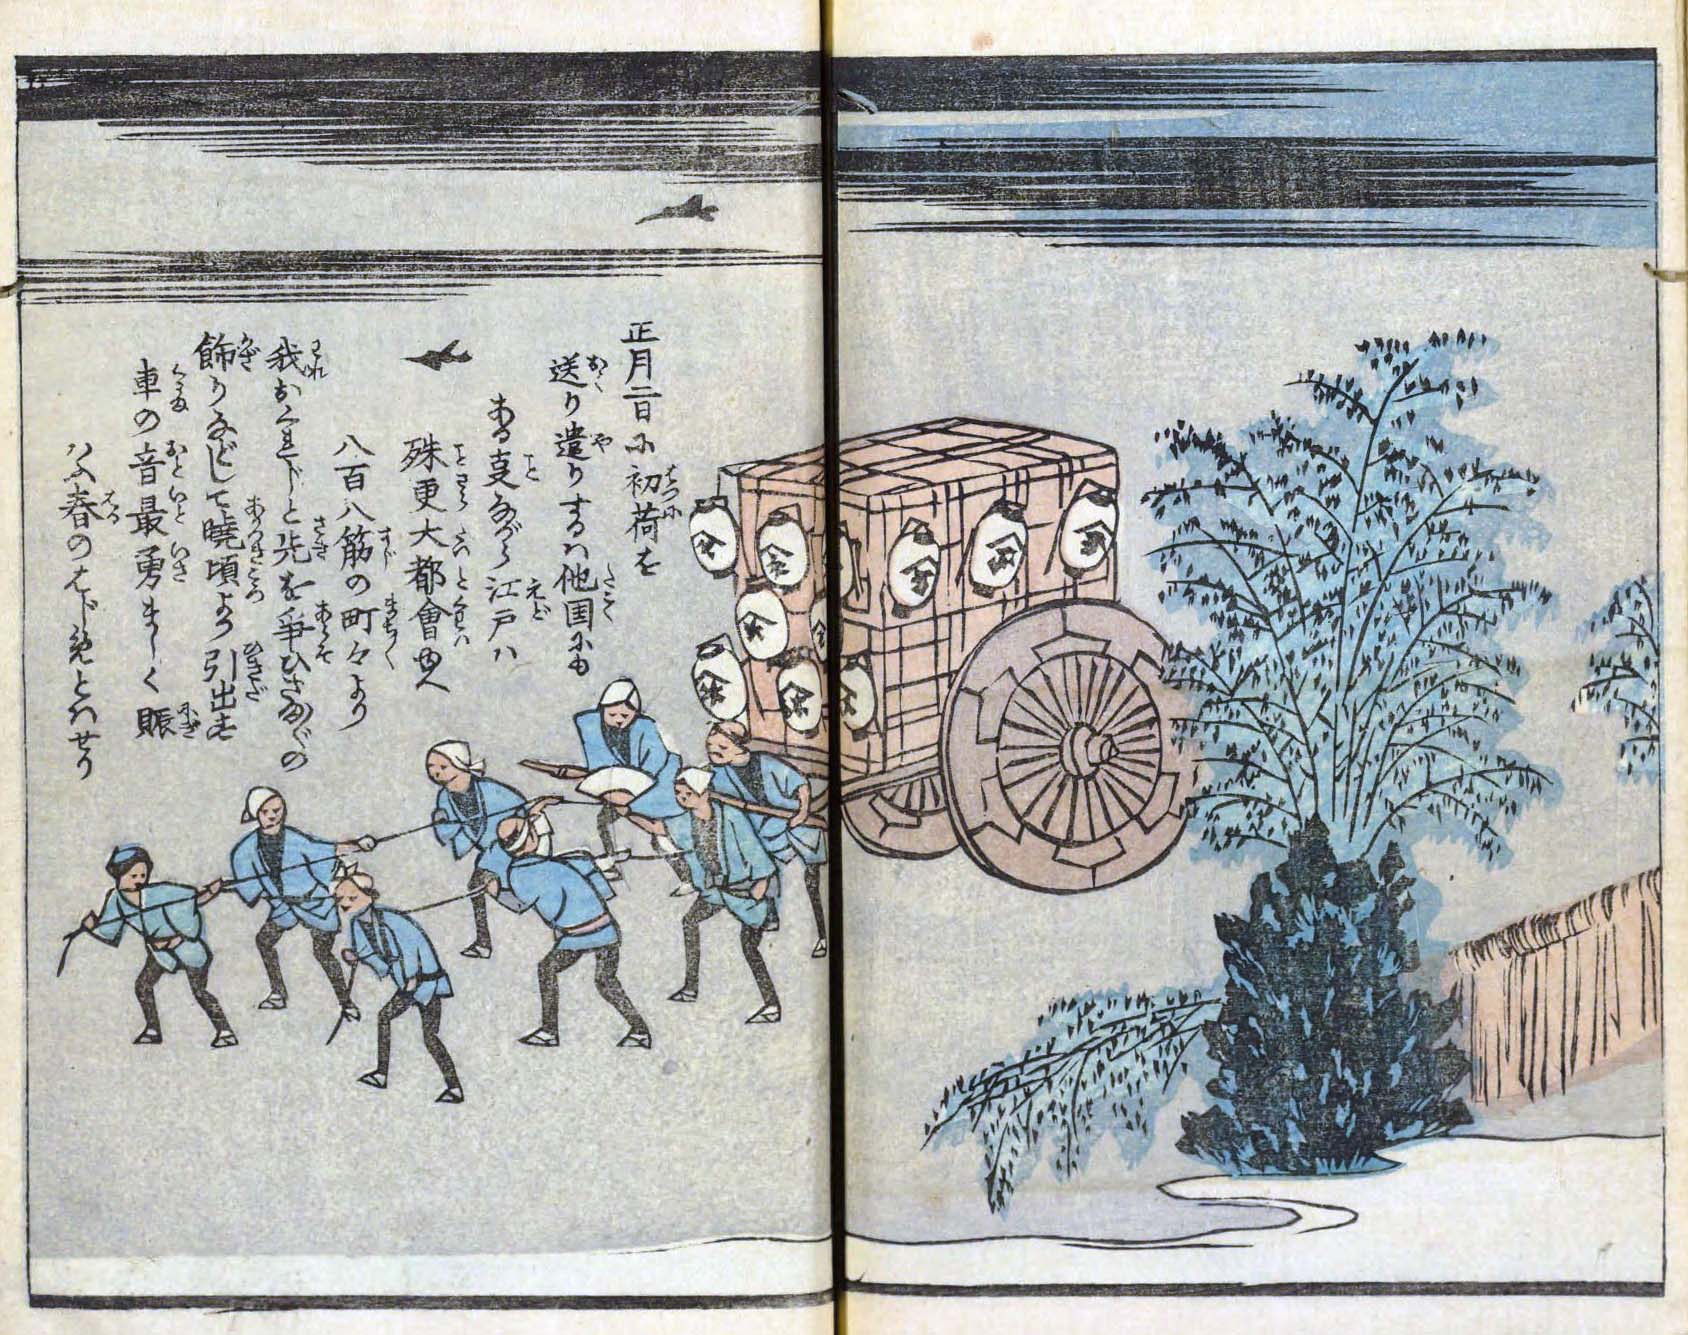 正月二日に初荷を
送り遣りするハ他国にも
ある事ながら江戸ハ
殊更大都會ゆへ
八百八筋の町々より
我おくれじと先を争ひさながの
飾りなどして暁頃より引出す
車の音最勇ましく賑
ハふ春のはじめとハせり